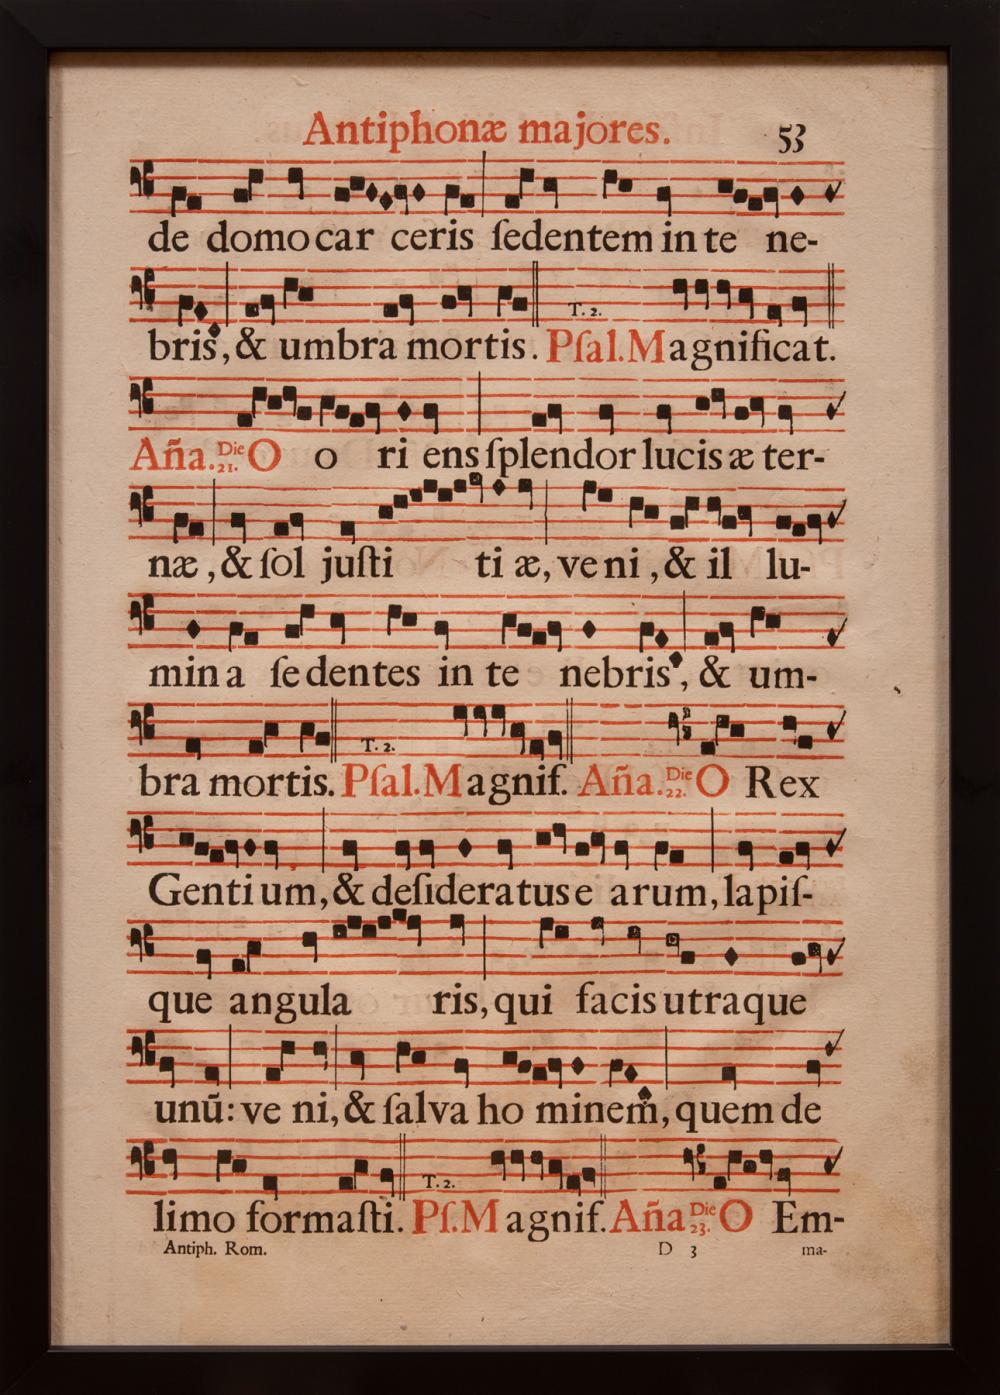 Antiphonæ majores. 53
de domo car ceris ſedentem in te ne-
T. 2.
bris, & umbra mortis. Pſal. Magnificat.
Aña. Die 21. O o ri ens ſplendor lucis æ ter-
næ, & ſol juſti ti æ, ve ni, & il lu-
min a ſe dentes in te nebris, & um-
T. 2.
bra mortis. Pſal. Magnif. Aña. Die 22. O Rex
Genti um, & deſideratus e arum, lapiſ-
que angula ris, qui facis utraque
unū: ve ni, & ſalva ho minem, quem de
T. 2.
limo formaſti. Pſ. Magnif. Aña Die 23. O Em-
Antiph. Rom. D 3 ma-